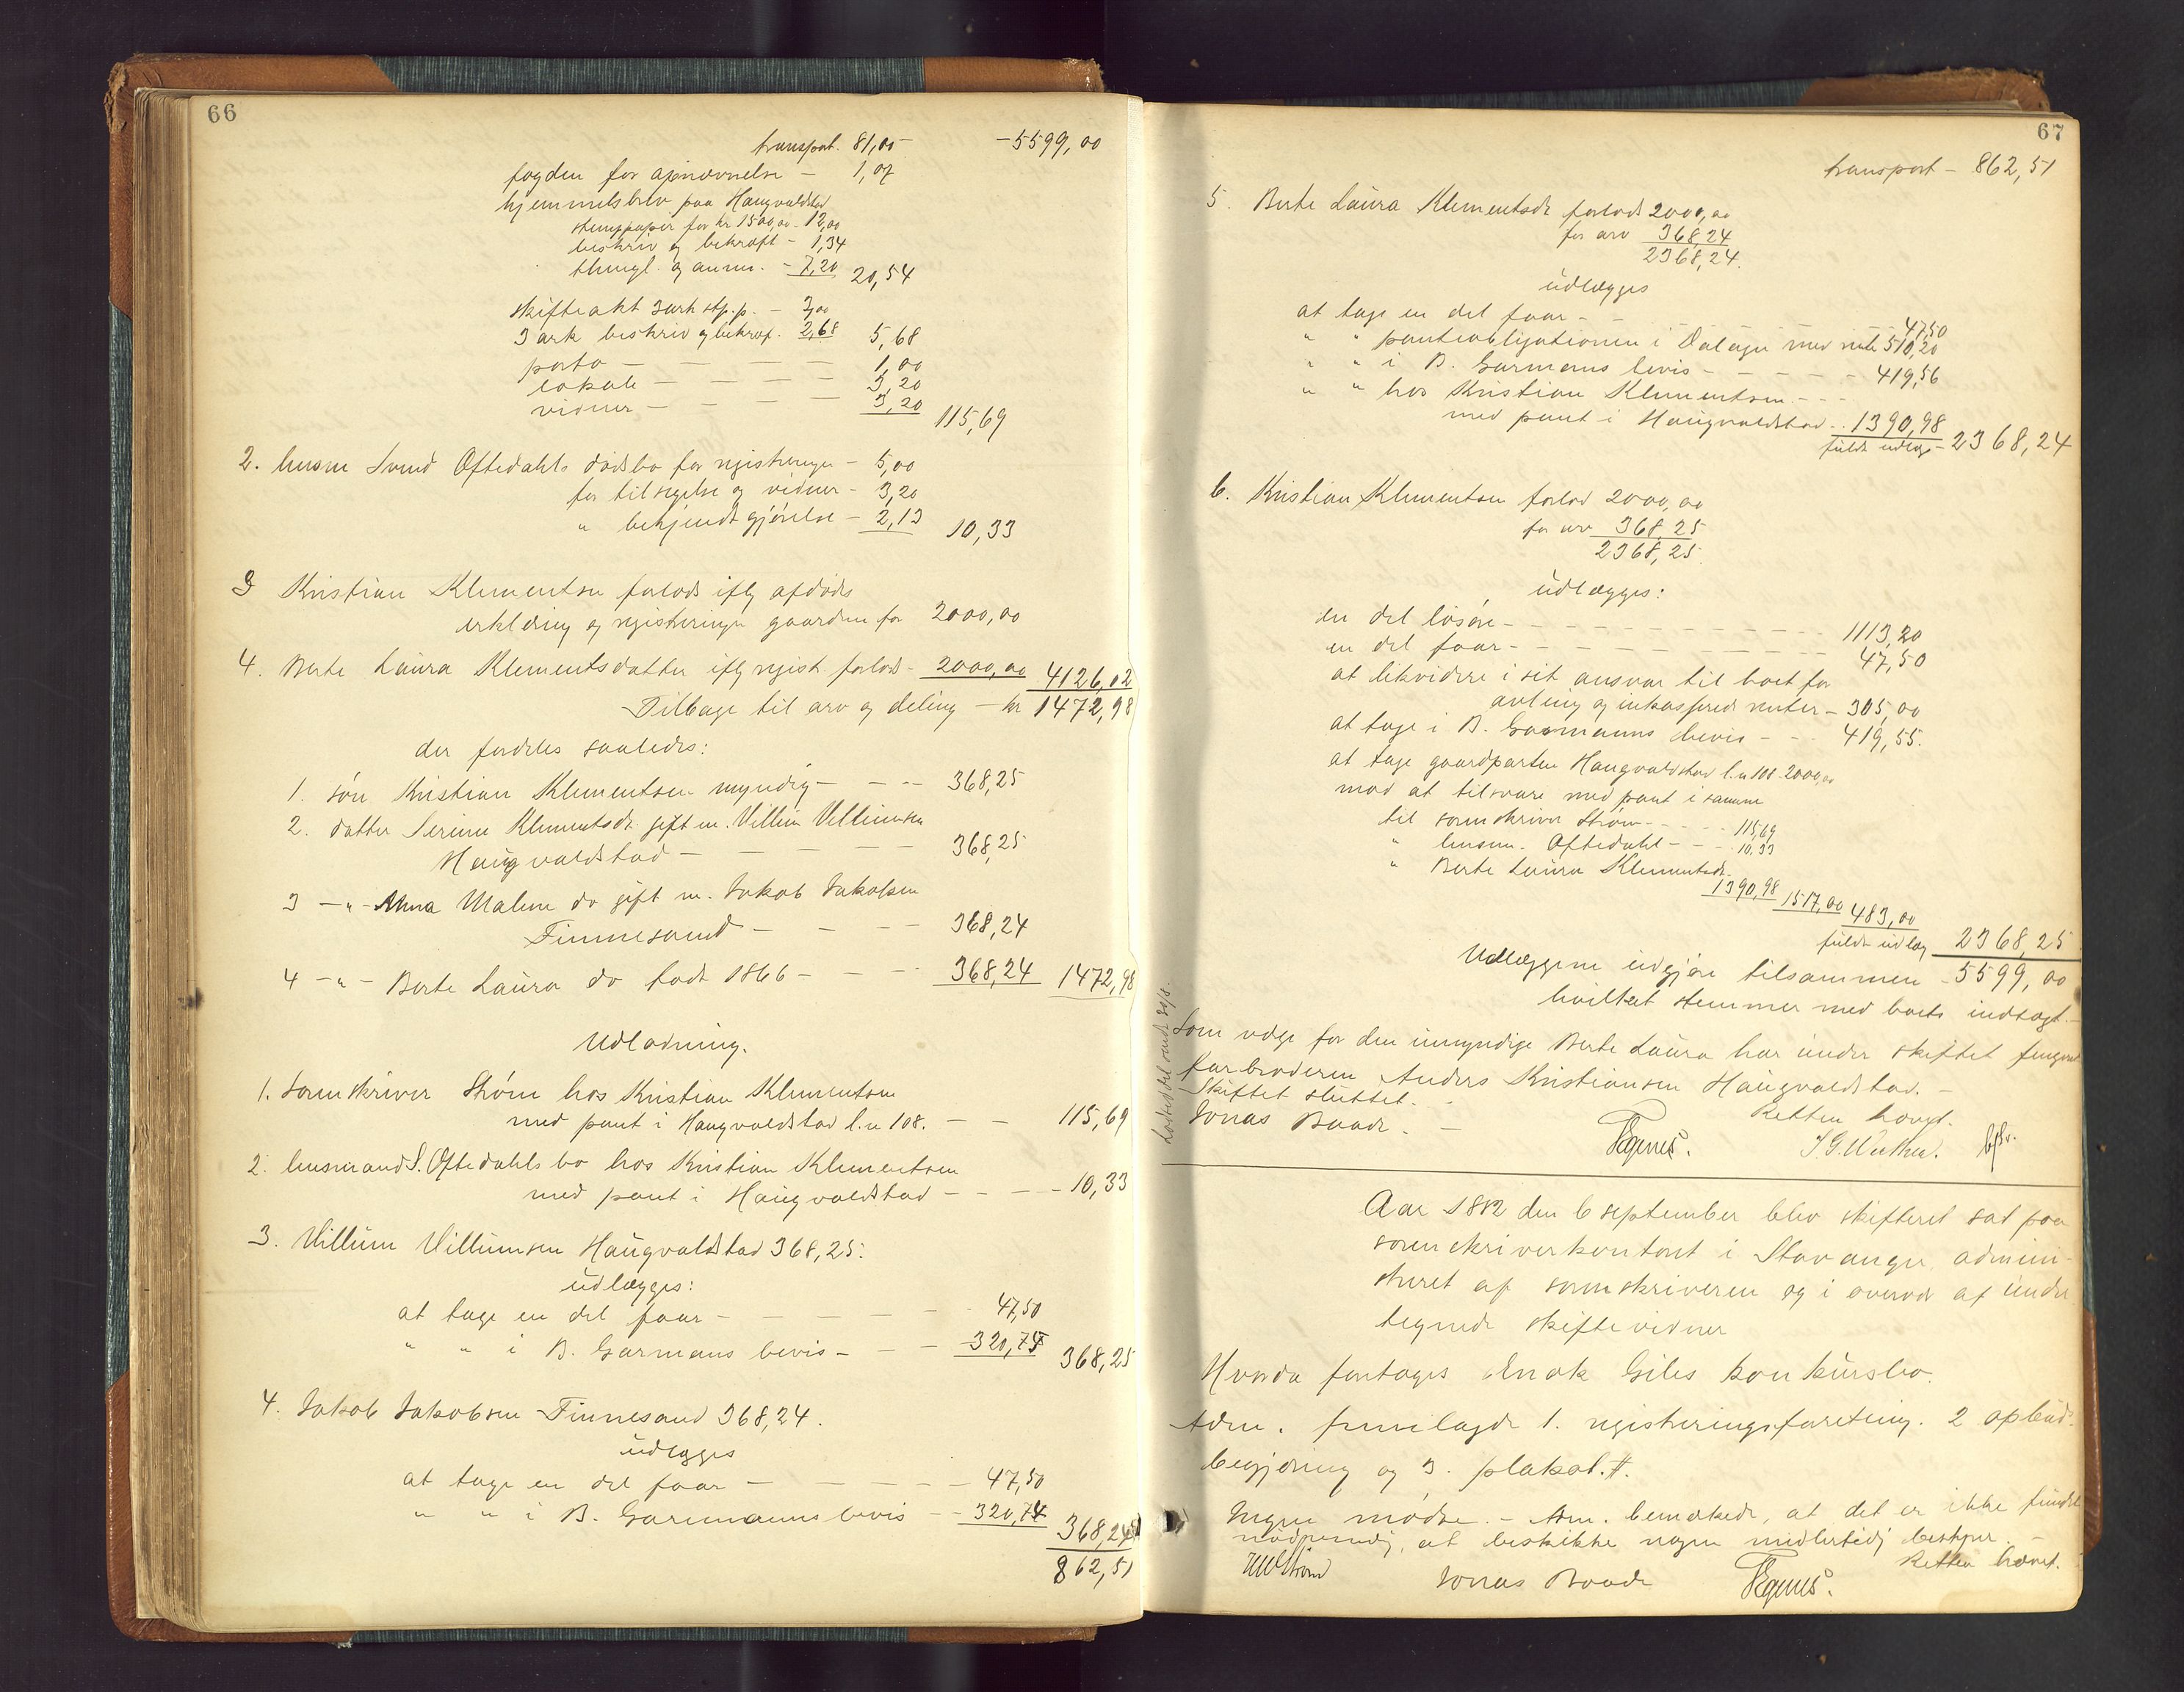 66
transport. 81,00 - 5599,00
fogden for opnævnelse - 1,07
hjemmelsbrev paa Haugvaldstad
stemppapir for kr 1500,00 - 12,00
beskriv og bekræft - 1,34
thingl. og anm. - 7,20 20,54
skifteakt 3 ark stp.p. - 3,00
3 ark beskriv og bekræf. 2,68 5,68
porto - 1,00
lokale - 3,20
vidner - 3,20 115,69
2. lensm Svend Oftedahls dødsbo for registeringen - 5,00
for tilsigelse og vidner - 3,20
" bekjendtgjørelse - 2,13 10,33
3 Kristian Klementsen forlods iflg afdødes
erklæring og registeringen gaarden for 2000,00
4. Berte Laura Klementsdatter iflg regist. forlods - 2000,00 4126,02
Tilbage til arv og deling - kr 1472,98
der fordeles saaledes:
1. søn Kristian Klementsen myndig - 368,25
2. datter Serine Klementsdt. gift m. Villum Villumsen
Haugvaldstad - 368,25
3 - " - Anna Malene do gift m. Jakob Jakobsen
Finnesand - 368,24
4 - " - Berte Laura do født 1866 - 368,24 1472,98
Udlodning.
1. Sorenskriver Strøm hos Kristian Klementsen
med pant i Haugvaldstad l.n 108. - 115,69
2. lensmand S. Oftedahls bo hos Kristian Klementsen
med pant i Haugvaldstad - 10,33
3. Villum Villumsen Haugvaldstad 368,25.
udlægges:
at tage en del faar - 47,50
" " i B. Garmans bevis - 320,75 368,25
4. Jakob Jakobsen Finnesand 368,24.
udlægges
at tage en del faar - 47,50
" " i B. Garmanns bevis - 320,74 368,24
862,51
67
transport - 862,51
5. Berte Laura Klementsdt forlods 2000,00
for arv 368,24
2368,24.
udlægges
at tage en del faar - 47,50
" " panteobligationen i Dalagen med rente 510,20
" " i B. Garmans bevis - 419,56
" " hos Kristian Klementsen -
med pant i Haugvaldstad - 1390,98
fuldt udlæg - 2368,24
6. Kristian Klementsen forlod 2000,00
for arv 368,25
2368,25.
udlægges:
en del løsøre - 1113,20
en del faar - 47,50
at likvidere i sit ansvar til boet for
avling og inkasserede renter - 305,00
at tage i B. Garmanns bevis - 419,55.
at tage gaardparten Haugvaldstad l.n 108 - 2000,00
mod at tilsvare med pant i samme
til sorenskriver Strøm - 115,69
" lensm. Oftedahl - 10,33
" Berte Laura Klementsdt.
1390,98 1517,00 483,00
fuldt udlæg 2368,25
Udlæggene udgjøre tilsammen - 5599,00
hvilket stemmer med boets indtægt. -
Som værge for den umyndige Berte Laura har under skiftet fungeret
farbroderen Anders Kristiansen Haugvaldstad. -
Skiftet sluttet.
Retten hævet.
Jonas Baade. -
Aar 1882 den 6 september blev skifteret sat paa
sorenskriverkontoret i Stavanger, admini-
streret af sorenskriveren og i overvær af under
tegnede skiftevidner
Hvorda foretoges Enok Giles konkursbo.
Adm. fremlagde 1. registreringsforretning. 2 opbuds-
begjæring og 3. plakat. #.
Ingen mødte. - Adm. bemærkede, at det er ikke fundet
nødvendig, at beskikke nogen midlertidig bestyrer. -
Retten hævet.
Jonas Baade